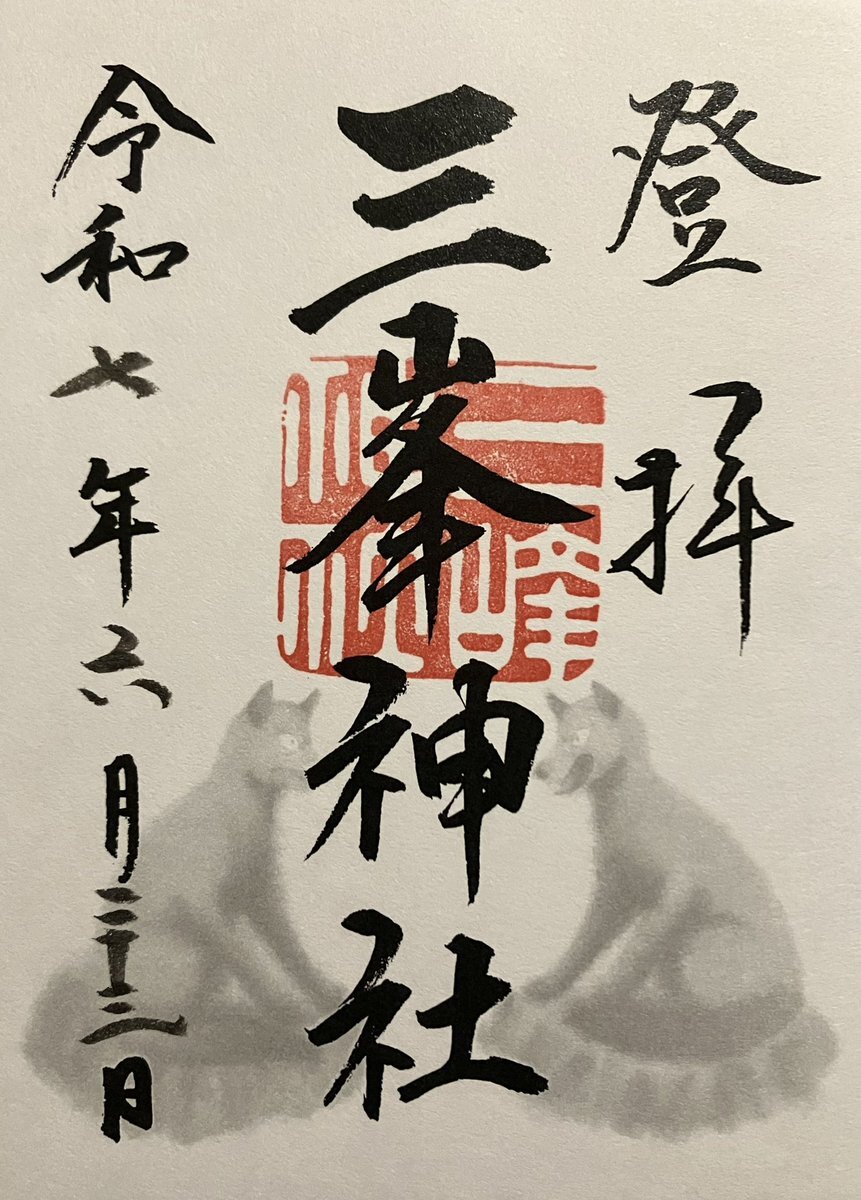 登拝
三峯神社
令和七年六月二十三日